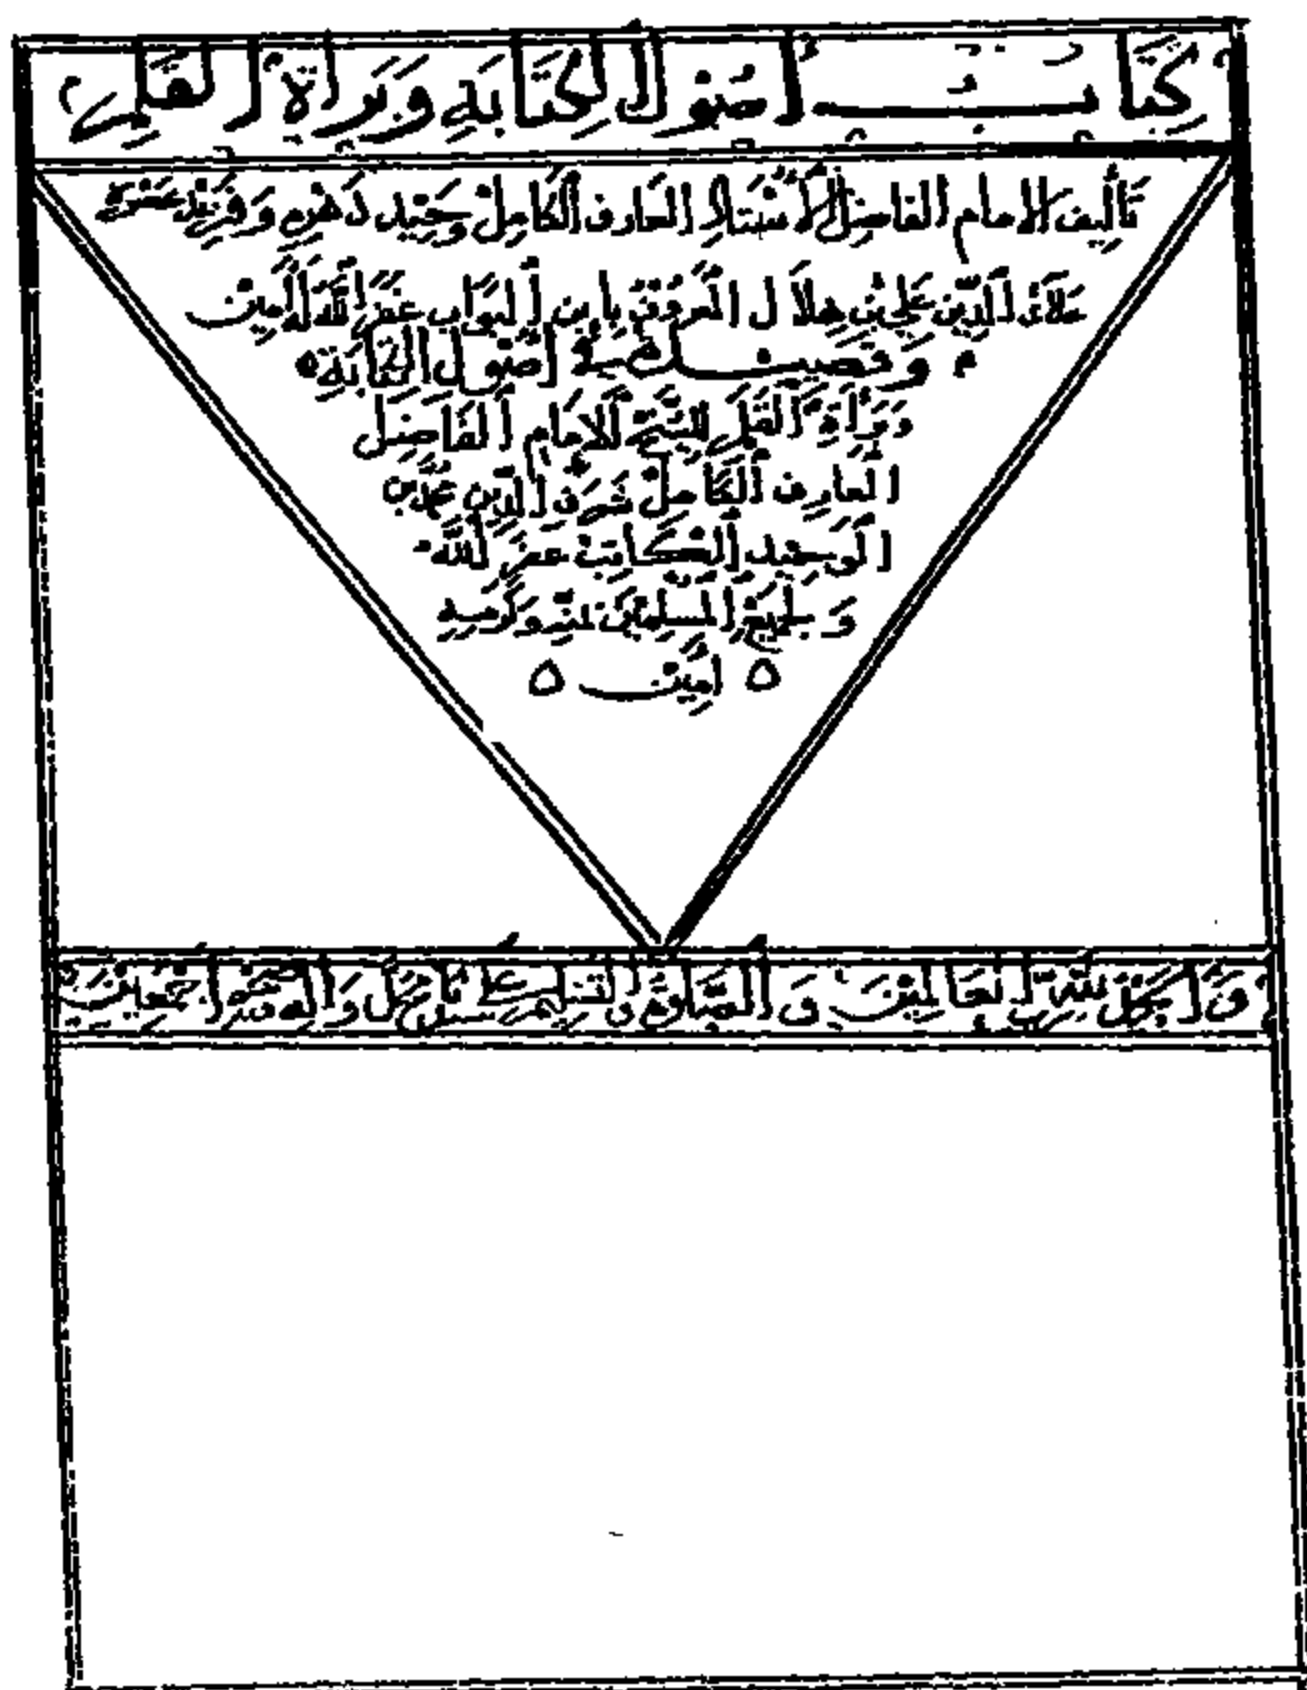 كِتَابُ أُصُولِ الْكِتَابَةِ وَبَرَاةِ الْقَلَمِ
تَأْلِيفُ الإمام الفاضِلِ الأُسْتَاذِ العارف الْكَامِلْ وَحِيْدِ دَهْرِهِ وَفَرِيْدِ عَصْرِهِ
عَلَاءُ الدِّيْنِ عَلِي بْنِ هِلَالِ الْمَعْرُوفِ بِابْنِ الْبَوَّابِ غَفَرَ اللَّهُ لَهُ آمِيْن
وَقَصِيْدَةٌ فِي أُصُولِ الْكِتَابَةِ
وَبَرَايَةِ الْقَلَمِ لِلشَّيْخِ الْاِمَامِ الْفَاضِلِ
الْعَارِفِ الْكَامِلْ شَرَفِ الدِّيْنِ مُحَمَّدِ بْنِ
الْوَحِيْدِ الْكَاتِبْ غَفَرَ اللَّهُ
وَلِجَمِيْعِ الْمُسْلِمِيْنَ بِمَنِّهِ وَكَرَمِهِ
٥ آمِيْن ٥
وَالْحَمْدُ لِلَّهِ رَبِّ الْعَالَمِيْنَ وَالصَّلَوةُ وَالتَّسْلِيْمُ عَلَى سَيِّدِنَا مُحَمَّدٍ وَآلِهِ وَصَحْبِهِ أَجْمَعِيْنَ